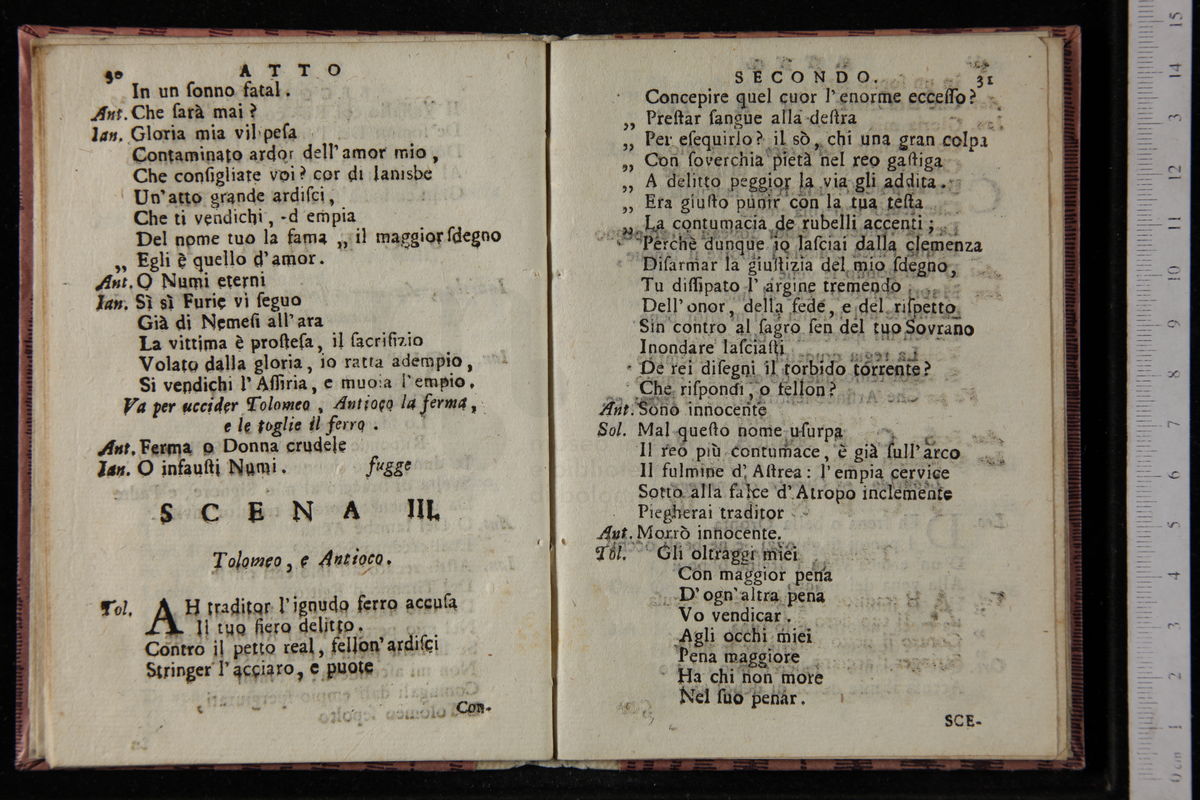 30 ATTO
In un ſonno fatal.
Ant. Che ſarà mai?
Ian. Gloria mia vilpeſa
Contaminato ardor dell'amor mio,
Che conſigliate voi? cor di Ianisbe
Un'atto grande ardiſci,
Che ti vendichi, -d empia
Del nome tuo la fama „ il maggior ſdegno
„ Egli è quello d'amor.
Ant. O Numi eterni
Ian. Sì sì Furie vi ſeguo
Già di Nemeſi all'ara
La vittima è proſteſa, il ſacrifizio
Volato dalla gloria, io ratta adempio,
Si vendichi l'Aſſiria, e muoia l'empio.
Va per uccider Tolomeo, Antioco la ferma,
e le toglie il ferro.
Ant. Ferma o Donna crudele
Ian. O infauſti Numi. fugge
SCENA III.
Tolomeo, e Antioco.
Tol. AH traditor l'ignudo ferro accuſa
Il tuo fiero delitto.
Contro il petto real, fellon' ardiſci
Stringer l'acciaro, e puote
Con-
SECONDO. 31
Concepire quel cuor l'enorme ecceſſo?
„ Preſtar ſangue alla deſtra
„ Per eſequirlo? il sò, chi una gran colpa
„ Con ſoverchia pietà nel reo gaſtiga
„ A delitto peggior la via gli addita.
„ Era giuſto punir con la tua teſta
„ La contumacia de rubelli accenti;
Perchè dunque io laſciai dalla clemenza
Diſarmar la giuſtizia del mio ſdegno,
Tu diſſipato l'argine tremendo
Dell'onor, della fede, e del riſpetto
Sin contro al ſagro ſen del tuo Sovrano
Inondare laſciaſti
De rei diſegni il torbido torrente?
Che riſpondi, o fellon?
Ant. Sono innocente
Sol. Mal queſto nome uſurpa
Il reo più contumace, è già full'arco
Il fulmine d'Aſtrea: l'empia cervice
Sotto alla falce d'Atropo inclemente
Piegherai traditor
Ant. Morrò innocente.
Tol. Gli oltraggi miei
Con maggior pena
D'ogn'altra pena
Vo vendicar.
Agli occhi miei
Pena maggiore
Ha chi non more
Nel ſuo penar.
SCE-
0 cm 1 2 3 4 5 6 7 8 9 10 11 12 13 14 15